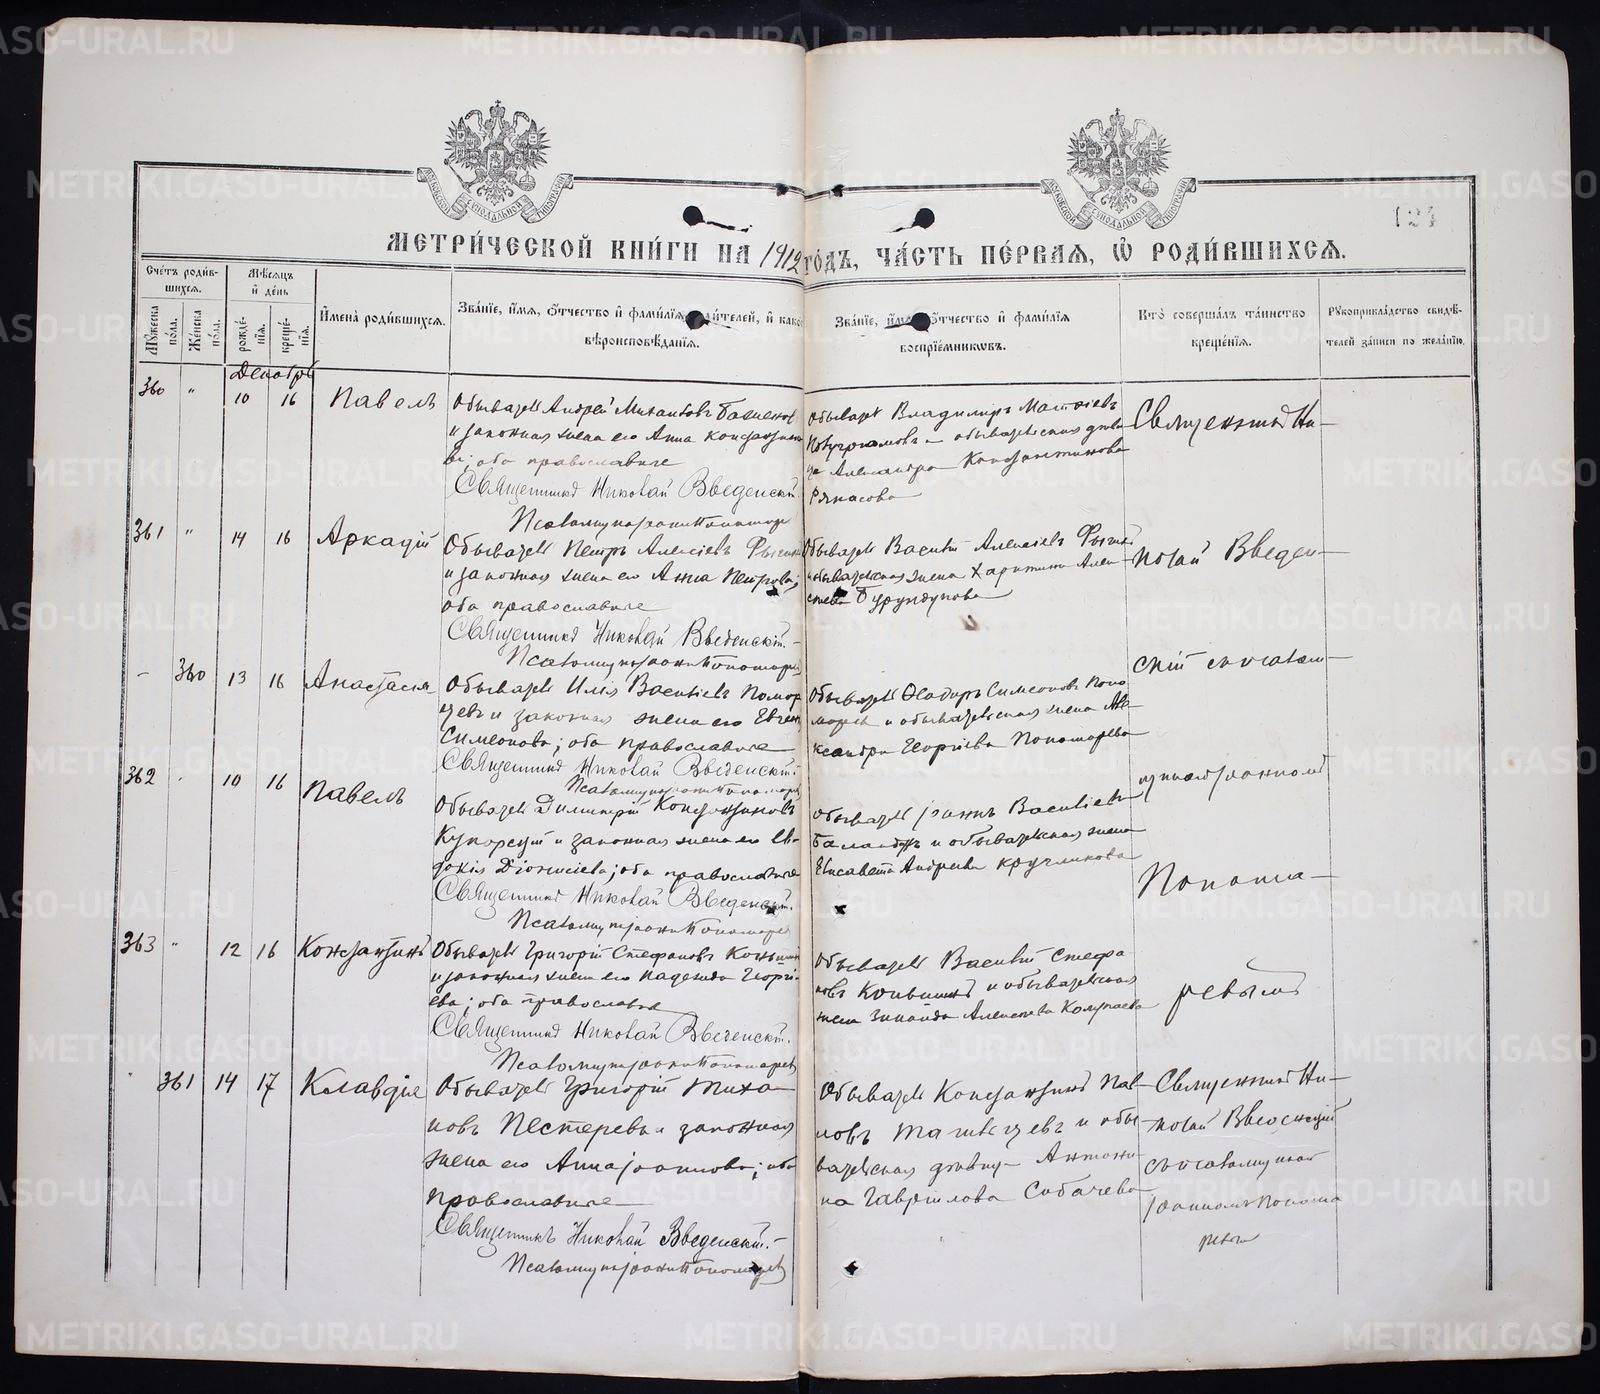 МЕТРИ́ЧЕСКОЙ КНИ́ГИ НА 1912 ГО́ДЪ, ЧА́СТЬ ПЕ́РВАЯ, Ѡ҆ РОДИ́ВШИХСЯ.
124
Сче́тъ роди́вшихся.
Мꙋ́жеска по́ла.
Же́нска по́ла.
Мѣ́сяцъ и҆ де́нь
рожде́нїя.
креще́нїя.
И҆мена̀ роди́вшихся.
Зва́нїе, и҆́мя, ѻ҆́тчество и҆ фами́лїя роди́телей, и҆ како́го
вѣроисповѣ́данїя.
Зва́нїе, и҆́мя, ѻ҆́тчество и҆ фами́лїя
воспрїе́мниковъ.
Кто̀ соверша́лъ та́инство
креще́нїя.
Рꙋкоприкла́дство свидѣ́-
телей за́писи по жела́нїю.
Декабрь
360 " 10 16 Павелъ
Обыватель Андрей Михаиловъ
и законная жена его Анна Константино
ва; оба православные
Священникъ Николай Введенскій.
Псаломщикъ Іоаннъ Пономаревъ
Обыватель Владимиръ Матѳіевъ
и обывательская дѣви
ца Александра Константинова
Священникъ Ни-
361 " 14 16 Аркадій
Обыватель Петръ Алексіевъ
и законная жена его Анна Петрова;
оба православные
Священникъ Николай Введенскій.
Псаломщикъ Іоаннъ Пономаревъ
Обыватель Василій Алексіевъ
обывательская жена Харитина Алек-
сіева Бурундукова
колай Введен-
- 360 13 16 Анастасія
Обыватель Илія Василіевъ Помор
цевъ и законная жена его Евгенія
Симеонова; оба православные
Священникъ Николай Введенскій.
Псаломщикъ Іоаннъ Пономаревъ
Обыватель Ѳеодоръ Симеоновъ Поно
маревъ и обывательская жена Але-
ксандра Георгіева Пономарева
скій съ псалом-
362 " 10 16 Павелъ
Обыватель Димитрій Константиновъ
и законная жена его Ев-
докія Діонисіева; оба православные
Священникъ Николай Введенскій.
Псаломщикъ Іоаннъ Пономаревъ
Обыватель Іоаннъ Василіевъ
Баландинъ и обывательская жена
Елисавета Андреева Кругликова
щикомъ Іоанномъ
Понома-
363 " 12 16 Константинъ
Обыватель Григорій Стефановъ
и законная жена его Надежда Георгі-
ева; оба православные
Священникъ Николай Введенскій.
Псаломщикъ Іоаннъ Пономаревъ
Обыватель Василій Стефа
новъ и обывательская
жена Зинаида Алексіева
ревымъ
" 361 14 17 Клавдія
Обыватель Григорій Тиха
новъ Пестеревъ и законная
жена его Анна Іоаннова; оба
православные
Священникъ Николай Введенскій.
Псаломщикъ Іоаннъ Пономаревъ
Обыватель Константинъ Пав-
ловъ и обы
вательская дѣвица Антони-
на Гаврилова Собачева
Священникъ Ни-
колай Введенскій
съ псаломщикомъ
Іоанномъ Понома
ревымъ
METRIKI.GASO-URAL.RU